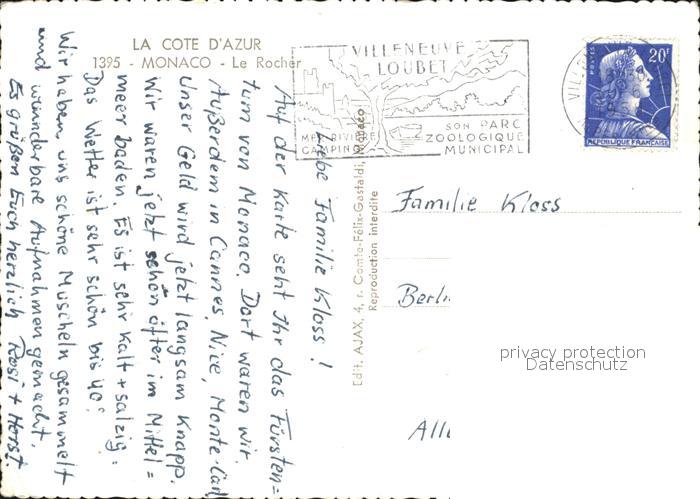 LA COTE D'AZUR
1395 - MONACO - Le Rocher
VILLENEUVE
LOUBET
MER RIVIERE
CAMPING
SON PARC
ZOOLOGIQUE
MUNICIPAL
POSTES
20F
REPUBLIQUE FRANÇAISE
Liebe Familie Kloss!
Auf der Karte seht Ihr das Fürsten=
tum von Monaco. Dort waren wir.
Außerdem in Cannes, Nice, Monte-Carl
Unser Geld wird jetzt langsam knapp.
Wir waren jetzt schon öfter im Mittel=
meer baden. Es ist sehr kalt + salzig.
Das Wetter ist sehr schön bis 40°
Wir haben uns schöne Muscheln gesammelt
und wunderbare Aufnahmen gemacht.
Es grüßen Euch herzlich Rosi + Horst.
Edit. AJAX, 4, r. Comte-Félix-Gastaldi, Monaco
Reproduction interdite
Familie Kloss
Berli
privacy protection
Datenschutz
All